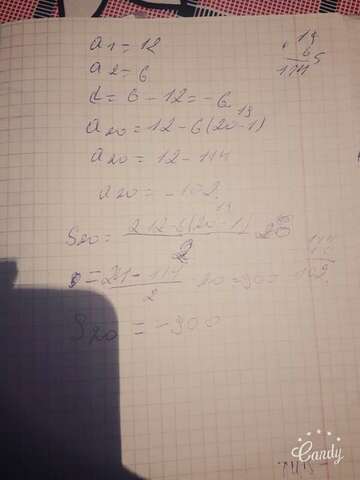 a1 = 12
a2 = 6
d = 6 - 12 = -6
19
a20 = 12 - 6(20-1)
a20 = 12 - 114
a20 = -102
19
S20 = 2·12-6(20-1) 20
2
= 24-114 20 = -900
2
S20 = -900
19
6
114
Candy